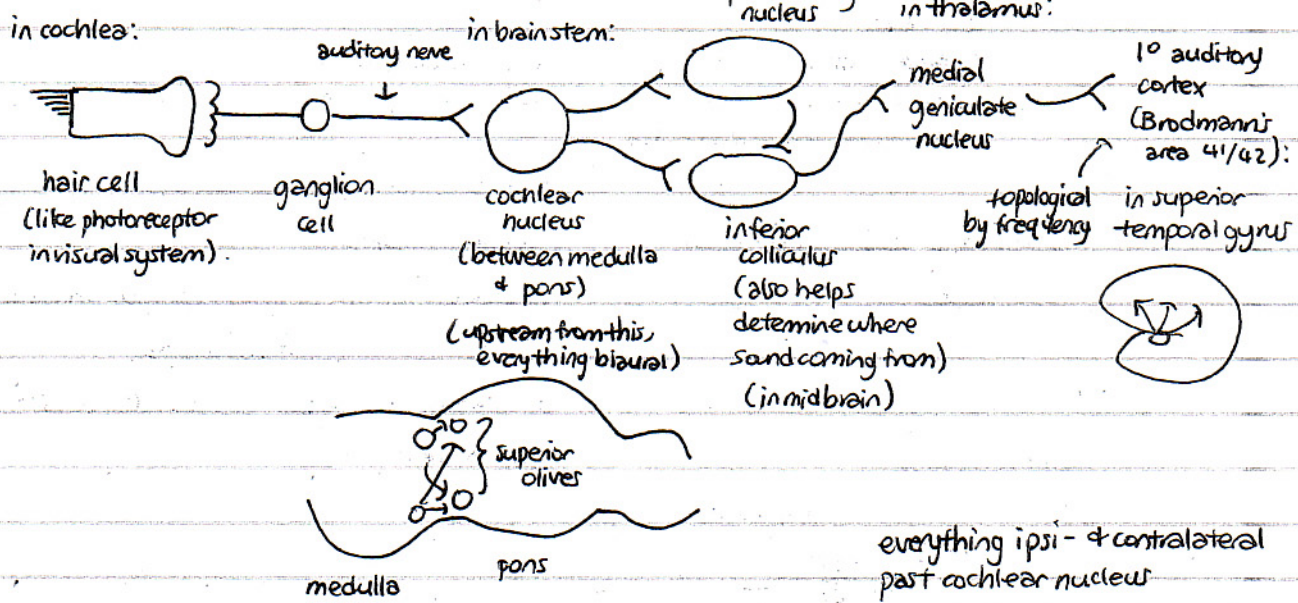 nucleus
in thalamus:
in cochlea:
auditory nerve
in brainstem:
hair cell
(like photoreceptor
in visual system).
ganglion
cell
cochlear
nucleus
(between medulla
& pons)
(upstream from this,
everything biaural)
inferior
colliculus
(also helps
determine where
sound coming from)
(in midbrain)
medial
geniculate
nucleus
topological
by frequency
1° auditory
cortex
(Brodmann's
area 41/42):
in superior
temporal gyrus
superior
olives
medulla
pons
everything ipsi- & contralateral
past cochlear nucleus